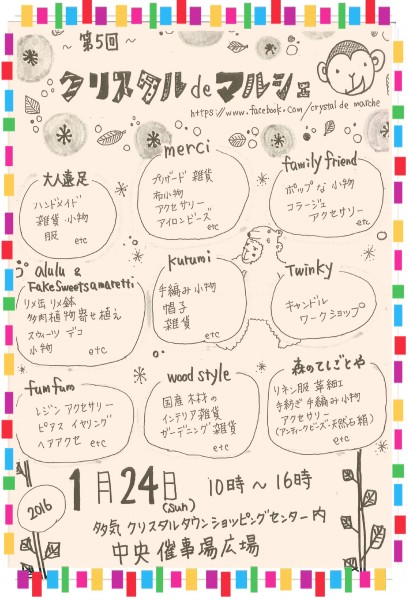 ～第5回～
クリスタル de マルシェ
https://www.facebook.com/crystal de marche
大人遠足
ハンドメイド
雑貨 小物
服
etc
merci
プリザーブド 雑貨
布小物
アクセサリー
アイロンビーズ
etc
family friend
ポップな小物
コラージュ
アクセサリー
etc
alulu &
FakeSweetsamaretti
リメ缶 リメ鉢
多肉植物寄せ植え
スウィーツ デコ
小物
etc
kutumi
手編み小物
帽子
雑貨
etc
Twinky
キャンドル
ワークショップ
fumfum
レジン アクセサリー
ピアス イヤリング
ヘアアクセ
etc
wood style
国産木材の
インテリア雑貨
ガーデニング雑貨
etc
森のてしごとや
リネン服 革細工
手紡ぎ手編み小物
アクセサリー
(アンティークビーズ・天然石 絹)
etc
2016
1月24日(sun) 10時～16時
多気クリスタルタウンショッピングセンター内
中央催事場広場